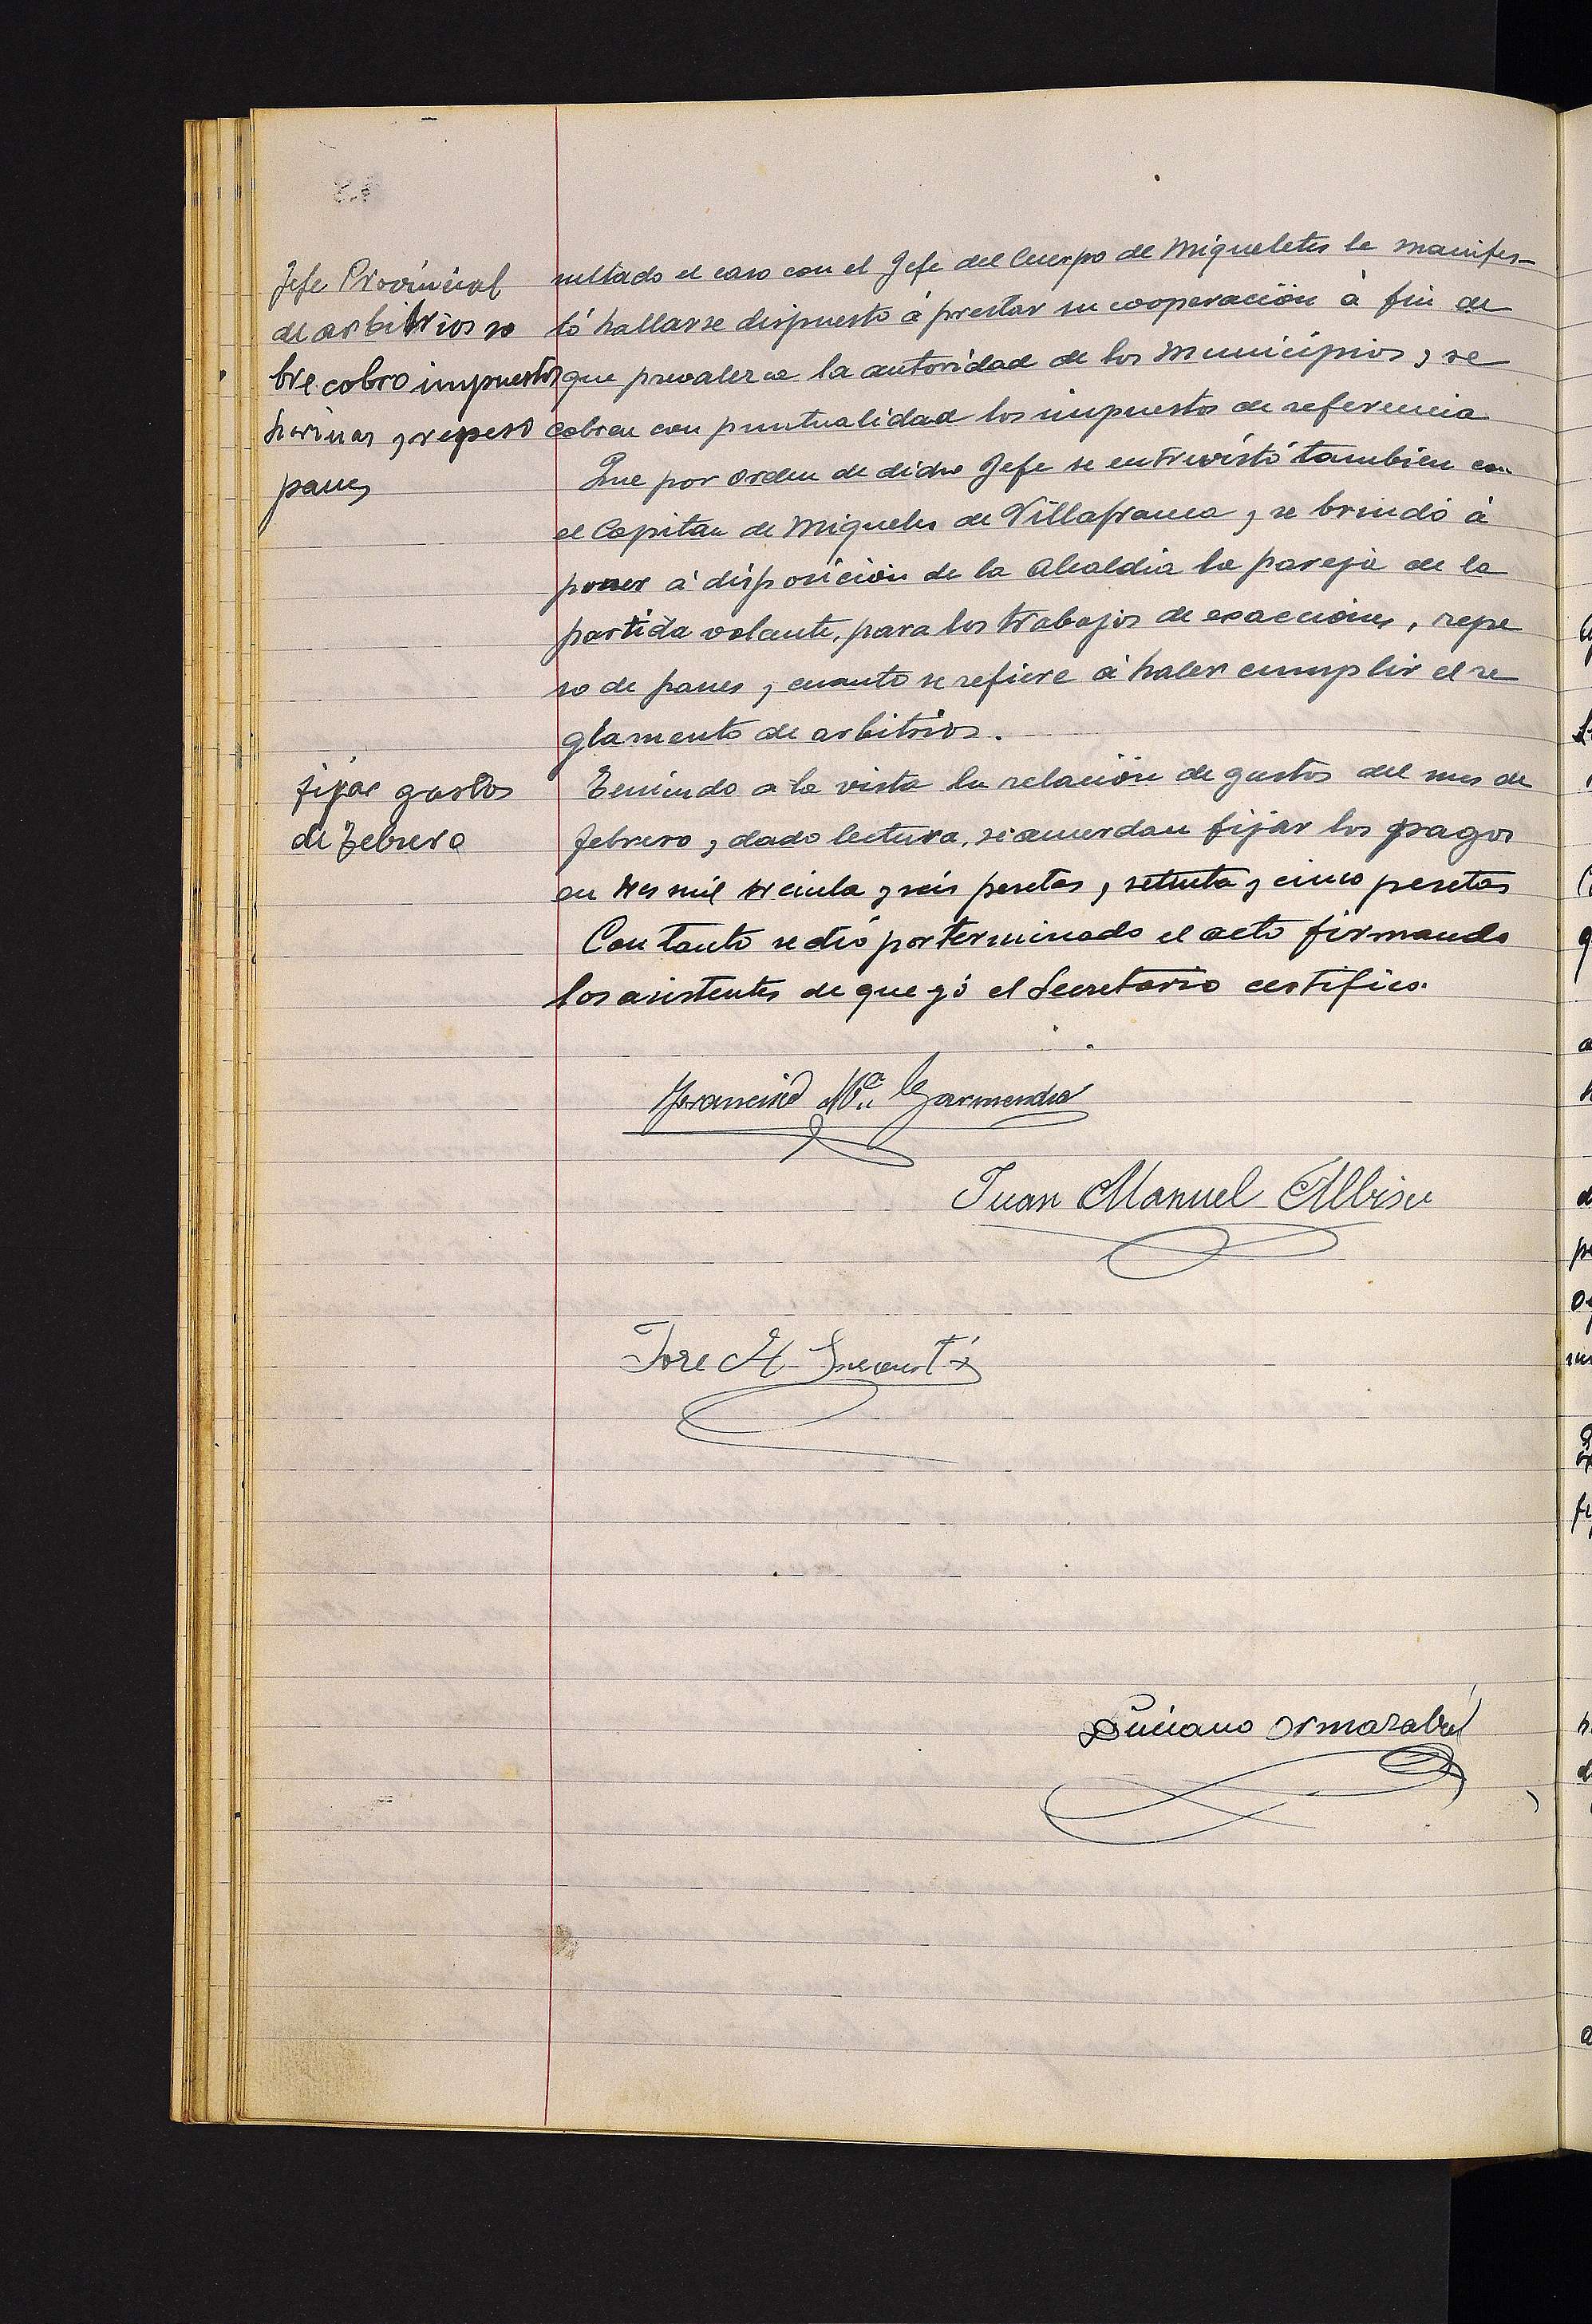 Jefe Provincial
de arbitrios so
bre cobro impuestos
harinas y repeso
panes
sultado el caso con el Jefe del Cuerpo de Miqueletes le manifes-
tó hallarse dispuesto á prestar su cooperación á fin de
que prevalezca la autoridad de los Municipios, y se
cobren con puntualidad los impuestos de referencia
Que por orden de dicho Jefe se entrevistó también con
el Capitan de Migueles de Villafranca, y se brindó á
poner á disposición de la Alcaldia la pareja de la
partida volante, para los trabajos de exacciones, repe
so de panes y cuanto se refiere á haler cumplir el re
glamento de arbitrios.
fijar gastos
de Febrero
Teniendo a la vista la relación de gastos del mes de
febrero, y dado lectura, se acuerdan fijar los pagos
en tres mil treinta y seis pesetas, y setenta y cinco pesetas
Con tanto se dió por terminado el acto firmando
los asistentes de que yó el Secretario certifico.
Francisco Mª Garmendia
Juan Manuel Albisu
Jose M
Luciano Ormazabal